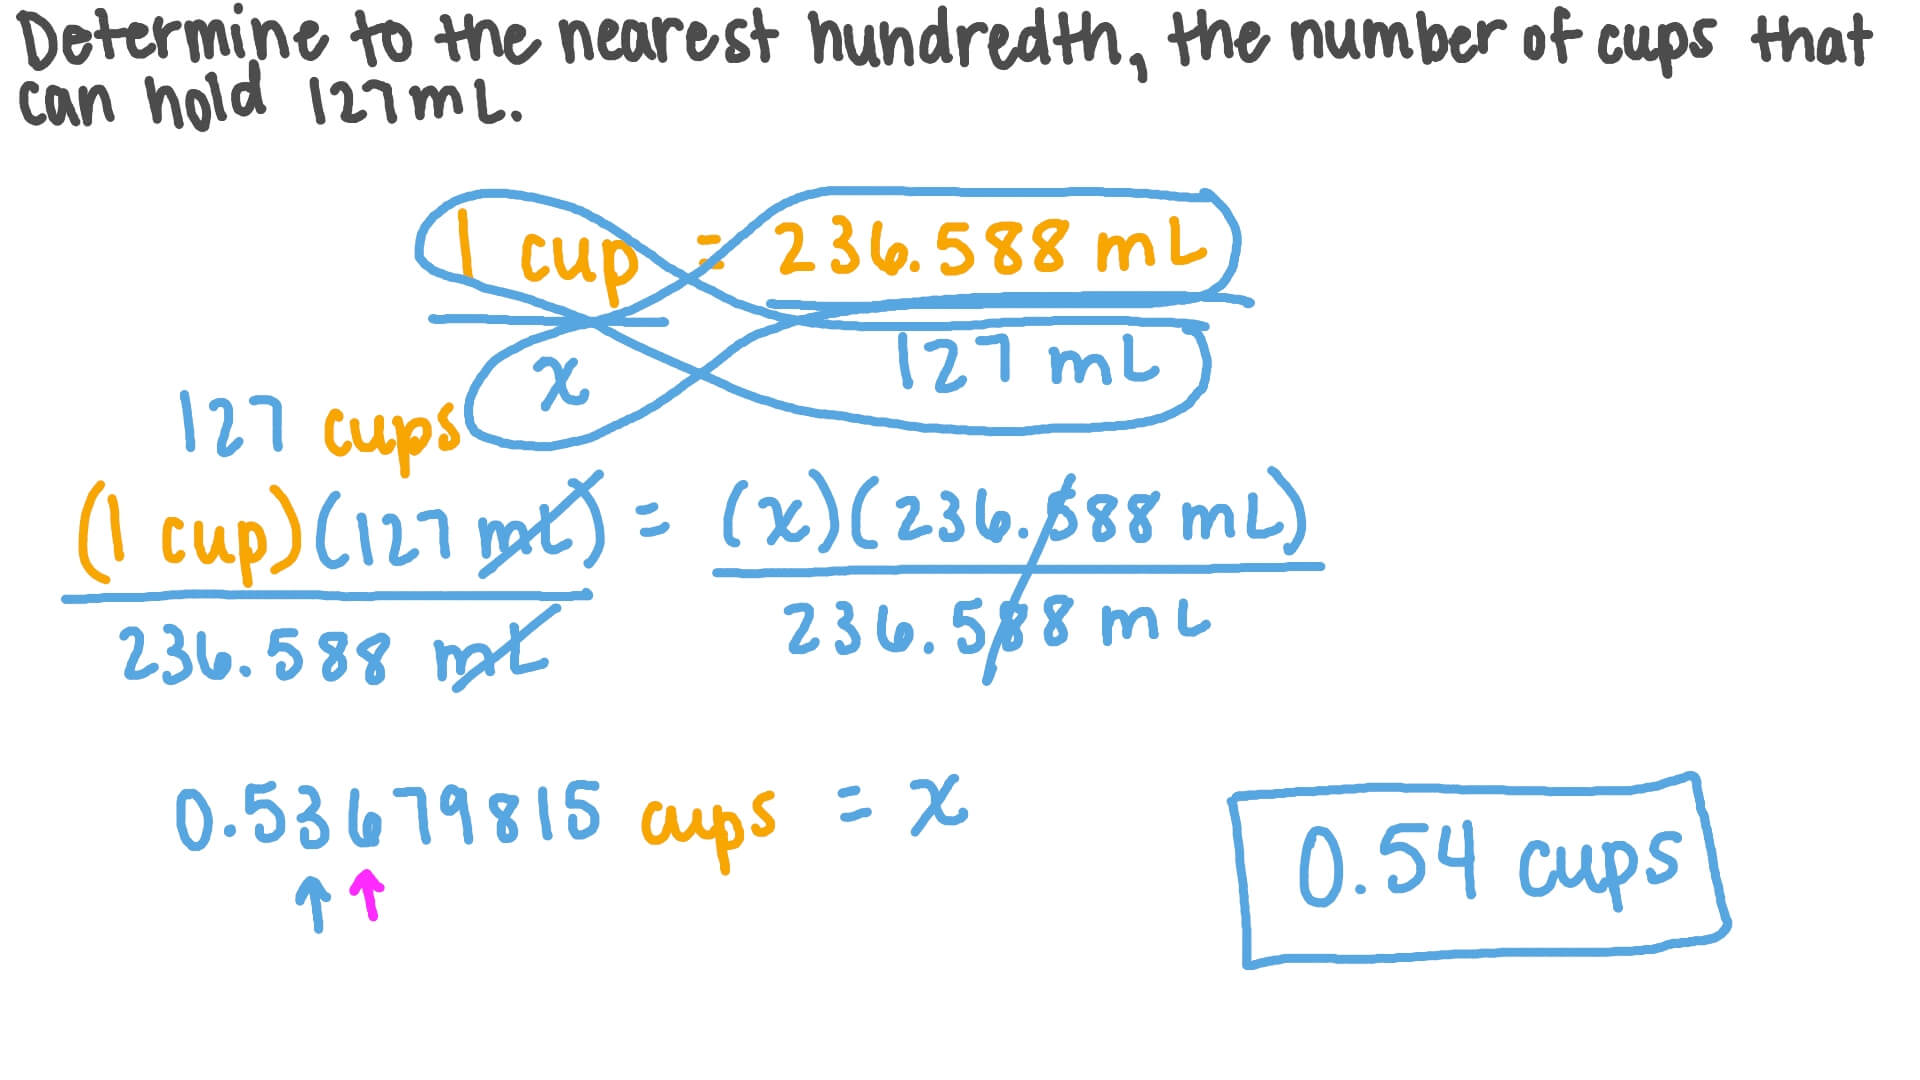 Determine to the nearest hundredth, the number of cups that
can hold 127mL.
1 cup = 236.588 mL
x 127 mL
127 cups
(1 cup)(127 mL) = (x)(236.588 mL)
236.588 mL 236.588 mL
0.53679815 cups = x
0.54 cups